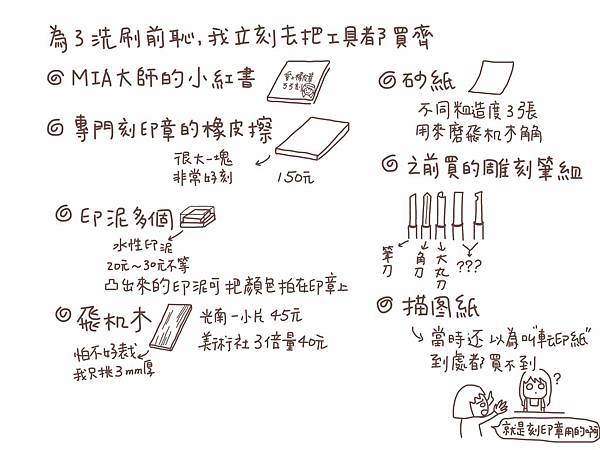 為了洗刷前恥,我立刻去把工具都買齊
MIA大師的小紅書
專門刻印章的橡皮擦
很大一塊
非常好刻
150元
印泥多個
水性印泥
20元~30元不等
凸出來的印泥可把顏色拍在印章上
飛机木
光南一小片45元
美術社3倍量40元
怕不好裁
我只挑3mm厚
砂紙
不同粗造度3張
用來磨飛机木角角
之前買的雕刻筆組
筆刀
角刀
大丸刀
???
描图紙
當時还以為叫"転印紙"
到處都買不到
?
就是刻印章用的啊